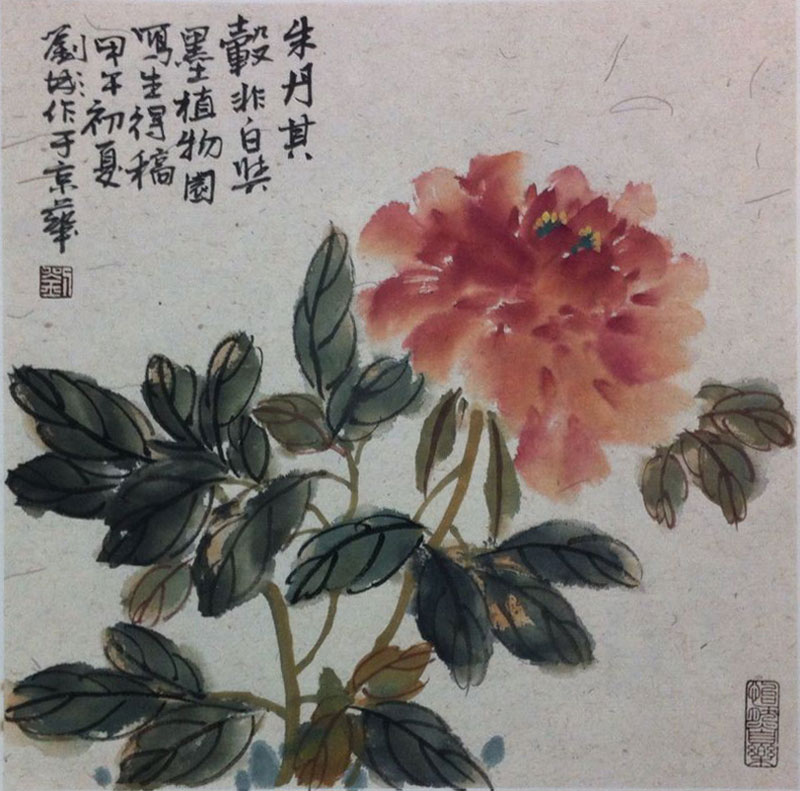 朱丹其
轂非白與
墨植物園
寫生得稿
甲午初夏
劉彬作于京華
劉